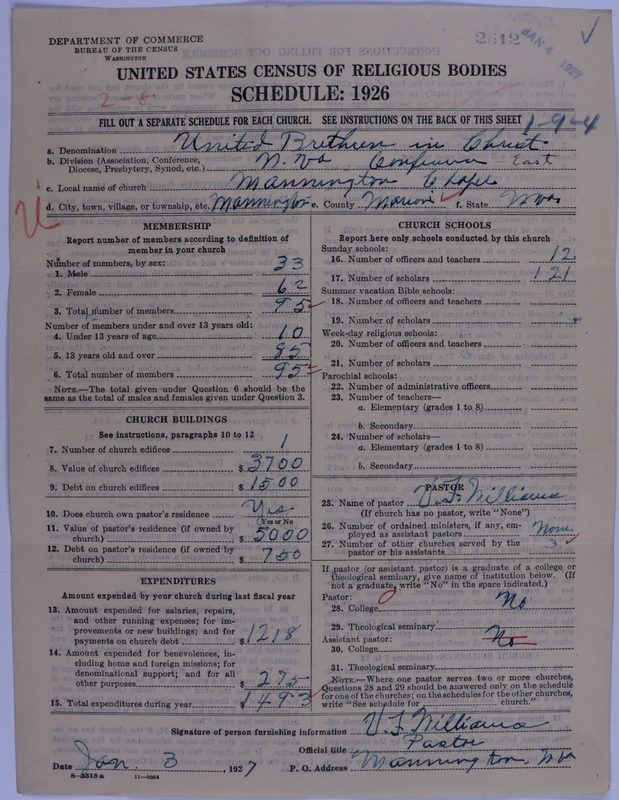 DEPARTMENT OF COMMERCE
BUREAU OF THE CENSUS
WASHINGTON
2612
JAN 4 1927
UNITED STATES CENSUS OF RELIGIOUS BODIES
2-6
SCHEDULE: 1926
FILL OUT A SEPARATE SCHEDULE FOR EACH CHURCH. SEE INSTRUCTIONS ON THE BACK OF THIS SHEET
1-9-4
a. Denomination United Brethren in Christ
b. Division (Association, Conference, Diocese, Presbytery, Synod, etc.) W. Va Conference East
c. Local name of church Mannington Chapel
d. City, town, village, or township, etc. Mannington e. County Marion f. State W Va
MEMBERSHIP
Report number of members according to definition of member in your church
Number of members, by sex:
1. Male 33
2. Female 62
3. Total number of members 95
Number of members under and over 13 years old:
4. Under 13 years of age 10
5. 13 years old and over 85
6. Total number of members 95
NOTE.—The total given under Question 6 should be the same as the total of males and females given under Question 3.
CHURCH BUILDINGS
See instructions, paragraphs 10 to 12
7. Number of church edifices 1
8. Value of church edifices $ 3700
9. Debt on church edifices $ 1500
10. Does church own pastor's residence Yes
(Yes or No)
11. Value of pastor's residence (if owned by church) $ 5000
12. Debt on pastor's residence (if owned by church) $ 750
EXPENDITURES
Amount expended by your church during last fiscal year
13. Amount expended for salaries, repairs, and other running expenses; for improvements or new buildings; and for payments on church debt $ 1218
14. Amount expended for benevolences, including home and foreign missions; for denominational support; and for all other purposes $ 275
15. Total expenditures during year $ 1493
CHURCH SCHOOLS
Report here only schools conducted by this church
Sunday schools:
16. Number of officers and teachers 12
17. Number of scholars 121
Summer vacation Bible schools:
18. Number of officers and teachers
19. Number of scholars
Week-day religious schools:
20. Number of officers and teachers
21. Number of scholars
Parochial schools:
22. Number of administrative officers
23. Number of teachers—
a. Elementary (grades 1 to 8)
b. Secondary
24. Number of scholars—
a. Elementary (grades 1 to 8)
b. Secondary
PASTOR
25. Name of pastor U. F. Williams
(If church has no pastor, write "None")
26. Number of ordained ministers, if any, employed as assistant pastors None
27. Number of other churches served by the pastor or his assistants 3
If pastor (or assistant pastor) is a graduate of a college or theological seminary, give name of institution below. (If not a graduate, write "No" in the space indicated.)
Pastor:
28. College No
29. Theological seminary
Assistant pastor:
30. College No
31. Theological seminary
NOTE.—Where one pastor serves two or more churches, Questions 28 and 29 should be answered only on the schedule for one of the churches; on the schedules for the other churches, write "See schedule for church."
Signature of person furnishing information U. F. Williams
Official title Pastor
Date Jan. 3, 1927 P. O. Address Mannington, W Va
8-5518a 11-9084